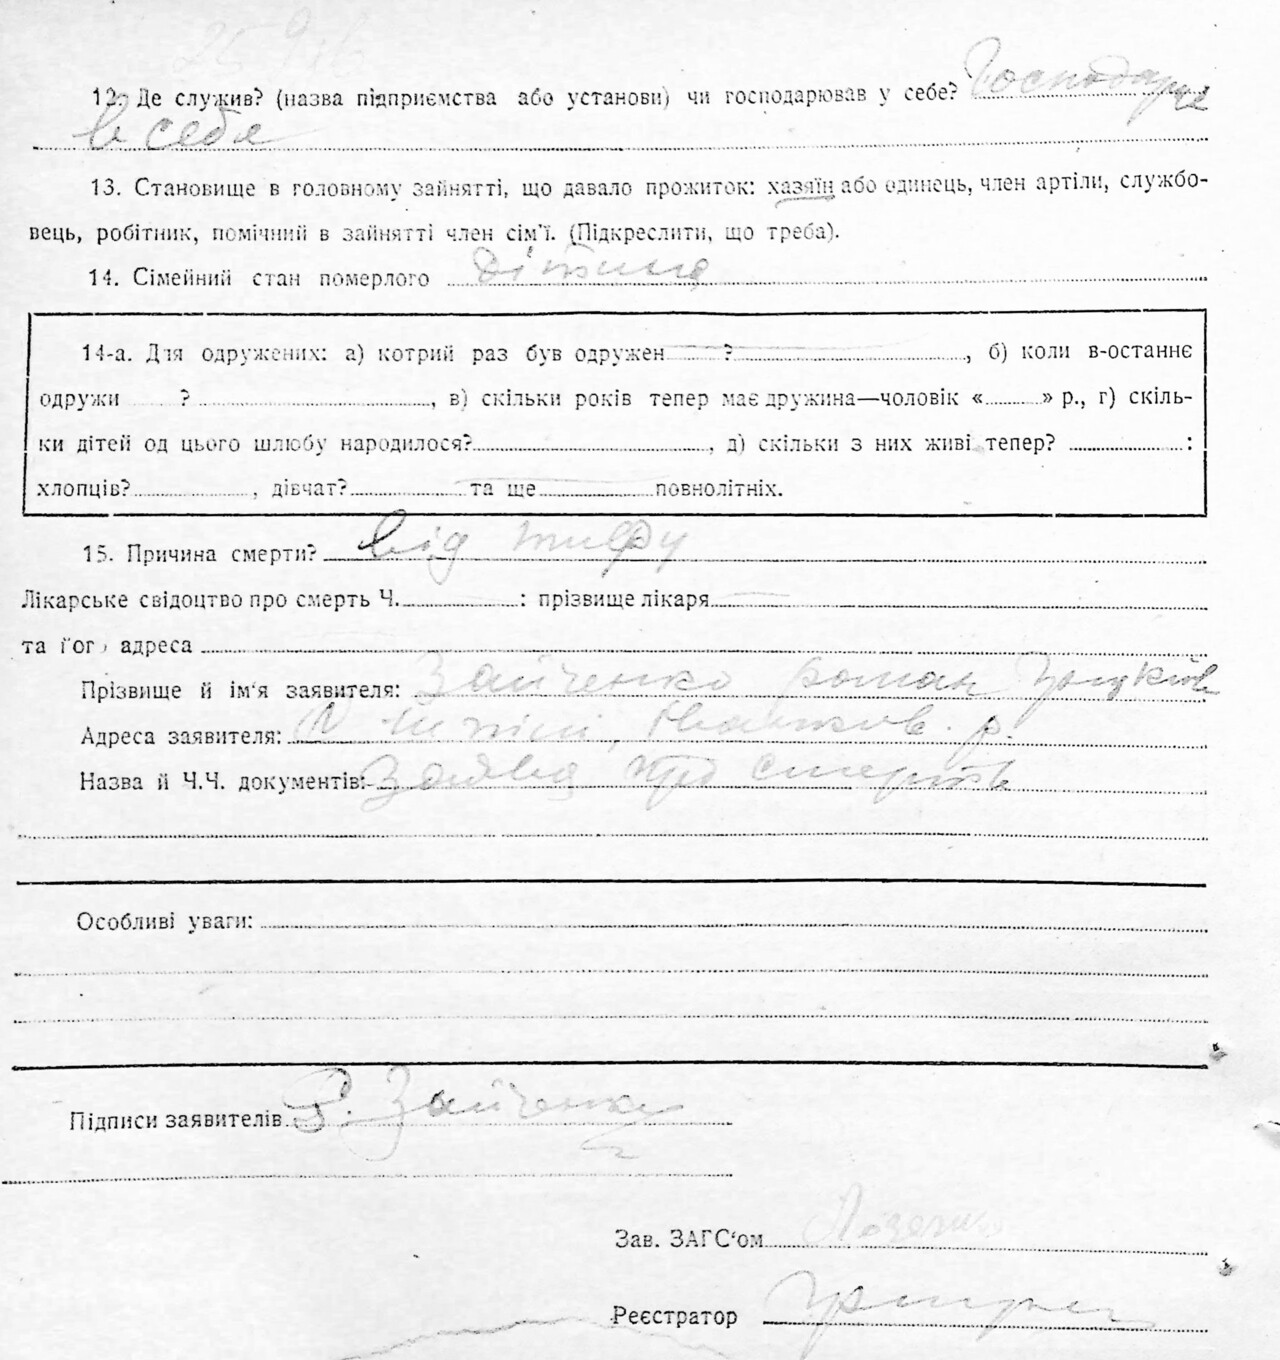 12. Де служив? (назва підприємства або установи) чи господарював у себе? Господарює
в себе
13. Становище в головному зайнятті, що давало прожиток: хазяїн або одинець, член артіли, службо-
вець, робітник, помічний в зайнятті член сім'ї. (Підкреслити, що треба).
14. Сімейний стан померлого дитина
14-а. Для одружених: а) котрий раз був одружен ? , б) коли в-останнє
одружи ? , в) скільки років тепер має дружина—чоловік « » р., г) скіль-
ки дітей од цього шлюбу народилося? , д) скільки з них живі тепер? :
хлопців? , дівчат? та ще повнолітніх.
15. Причина смерти? від тифу
Лікарське свідоцтво про смерть Ч. : прізвище лікаря
та його адреса
Прізвище й ім'я заявителя: Зайченко роман
Адреса заявителя: р.
Назва й Ч.Ч. документів: Заява про смерть
Особливі уваги:
Підписи заявителів Р. Зайченко
Зав. ЗАГС'ом
Реєстратор